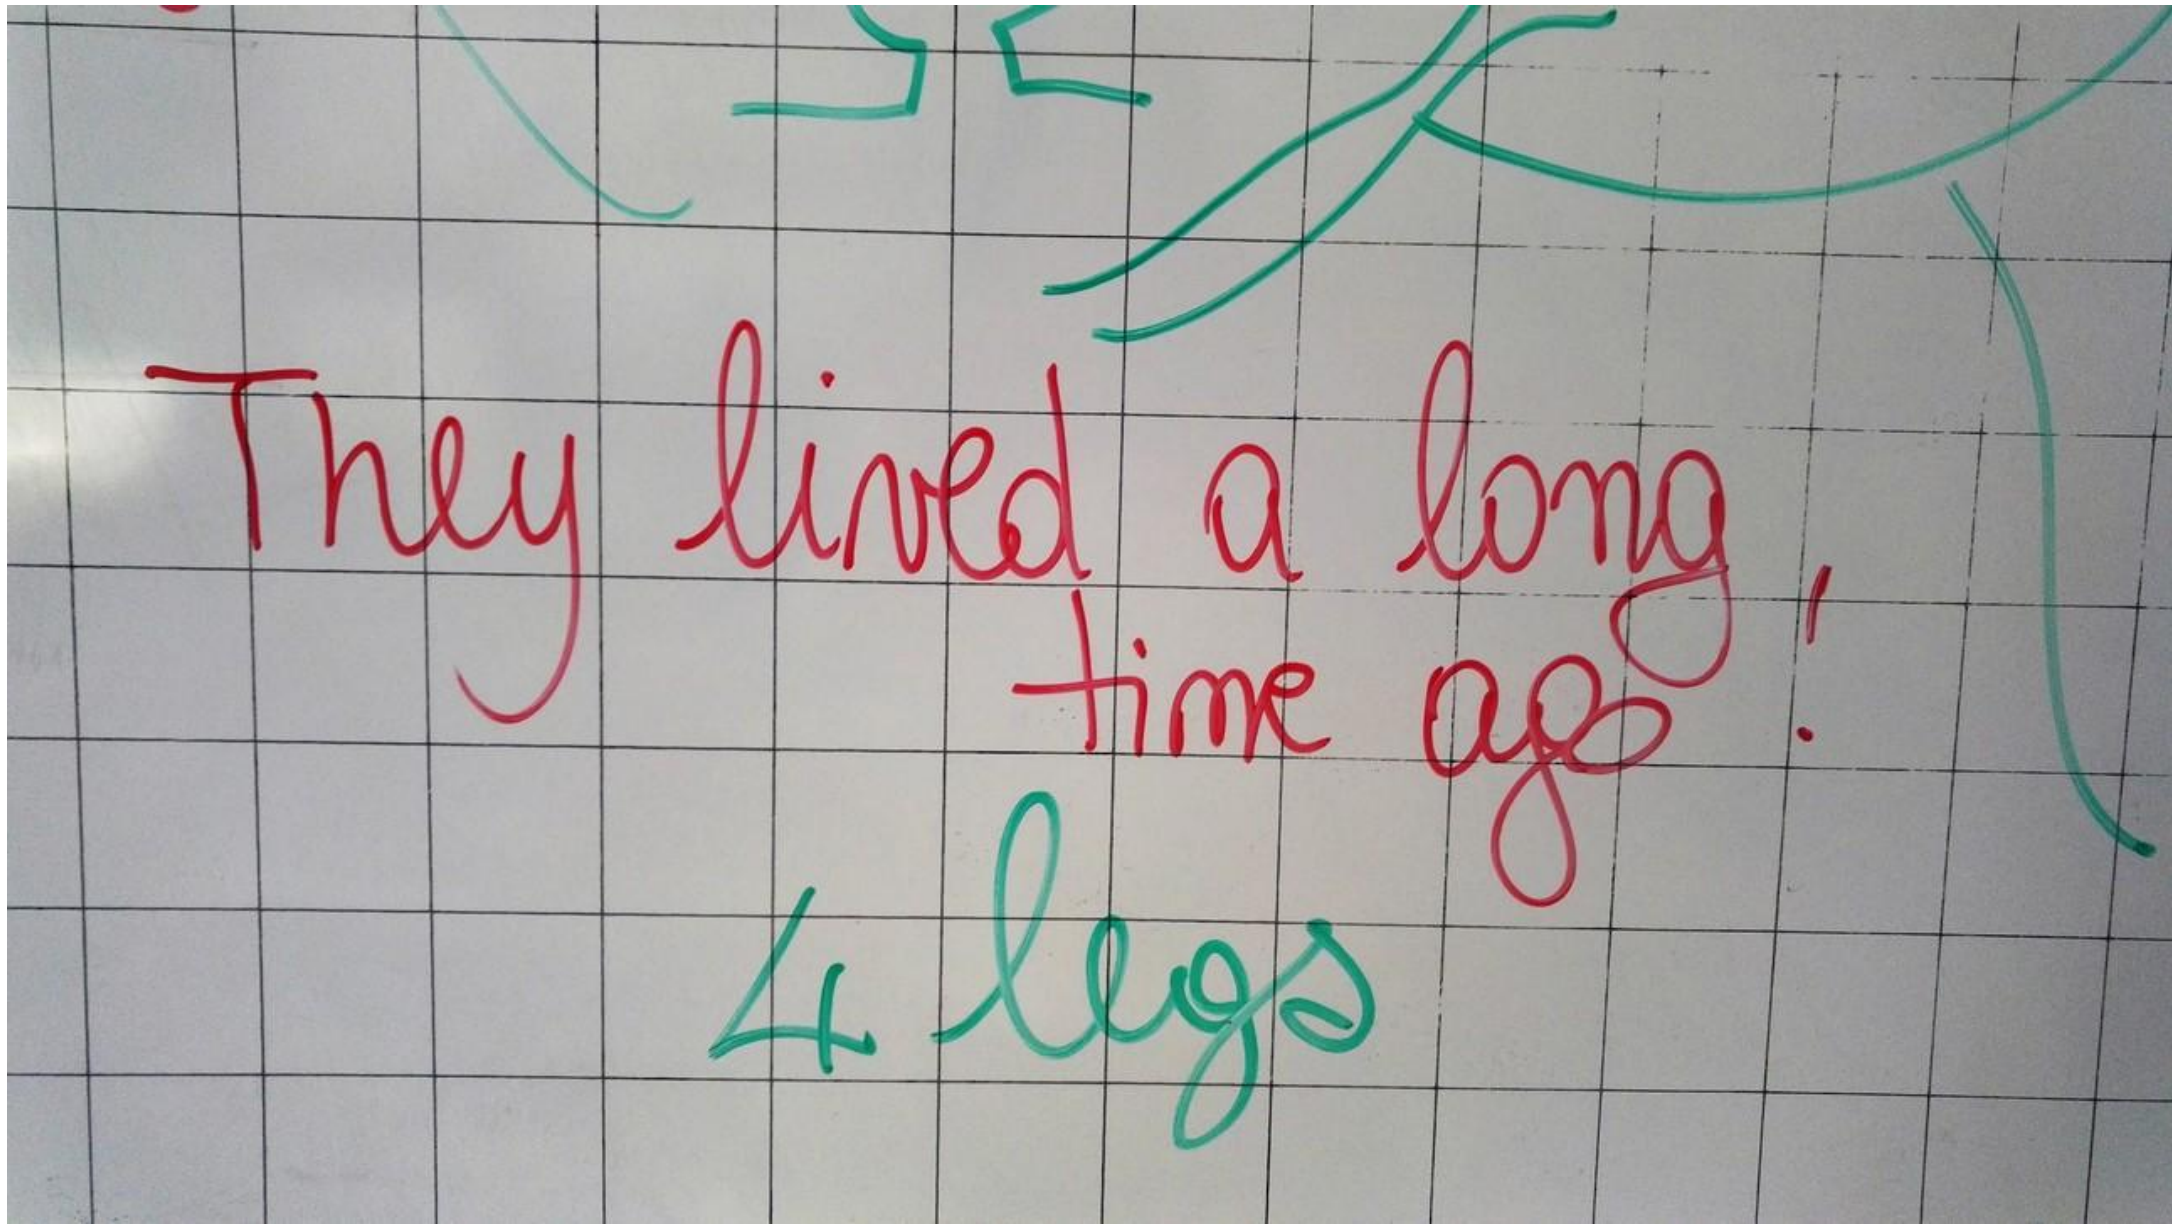 They lived a long
time ago!
4 legs